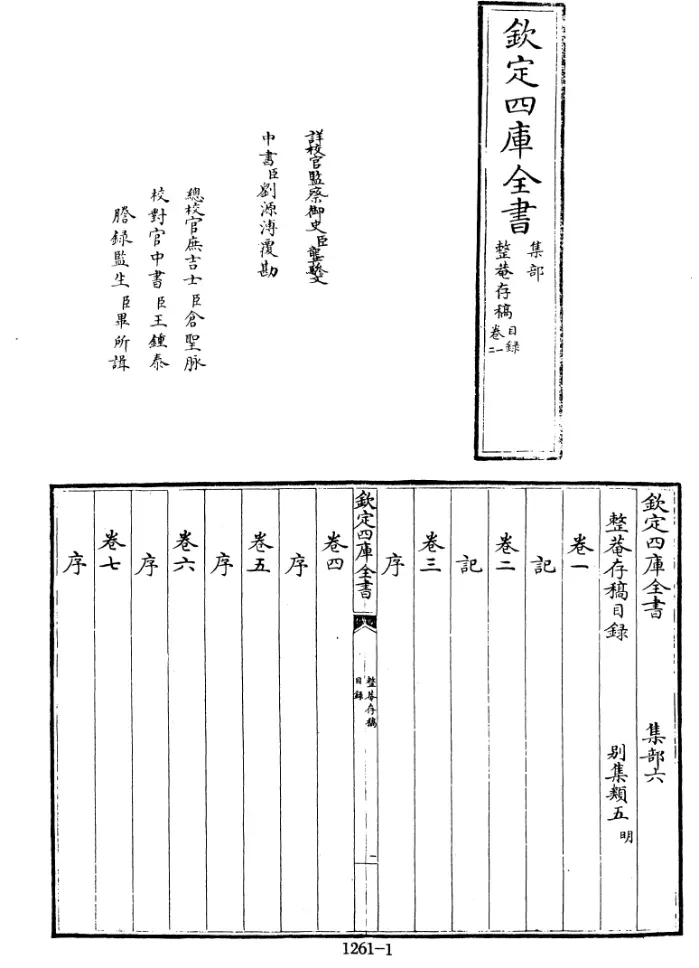 欽定四庫全書
集部
整菴存稿
目錄
卷一
二
詳校官監察御史臣龔驂文
中書臣劉源溥覆勘
總校官庶吉士臣倉聖脉
校對官中書臣王鍾泰
謄錄監生臣畢所諿
欽定四庫全書 集部六
整菴存稿目録 別集類五 明
卷一
記
卷二
記
卷三
序
欽定四庫全書
整菴存稿
目録
一
卷四
序
卷五
序
卷六
序
卷七
序
1261-1